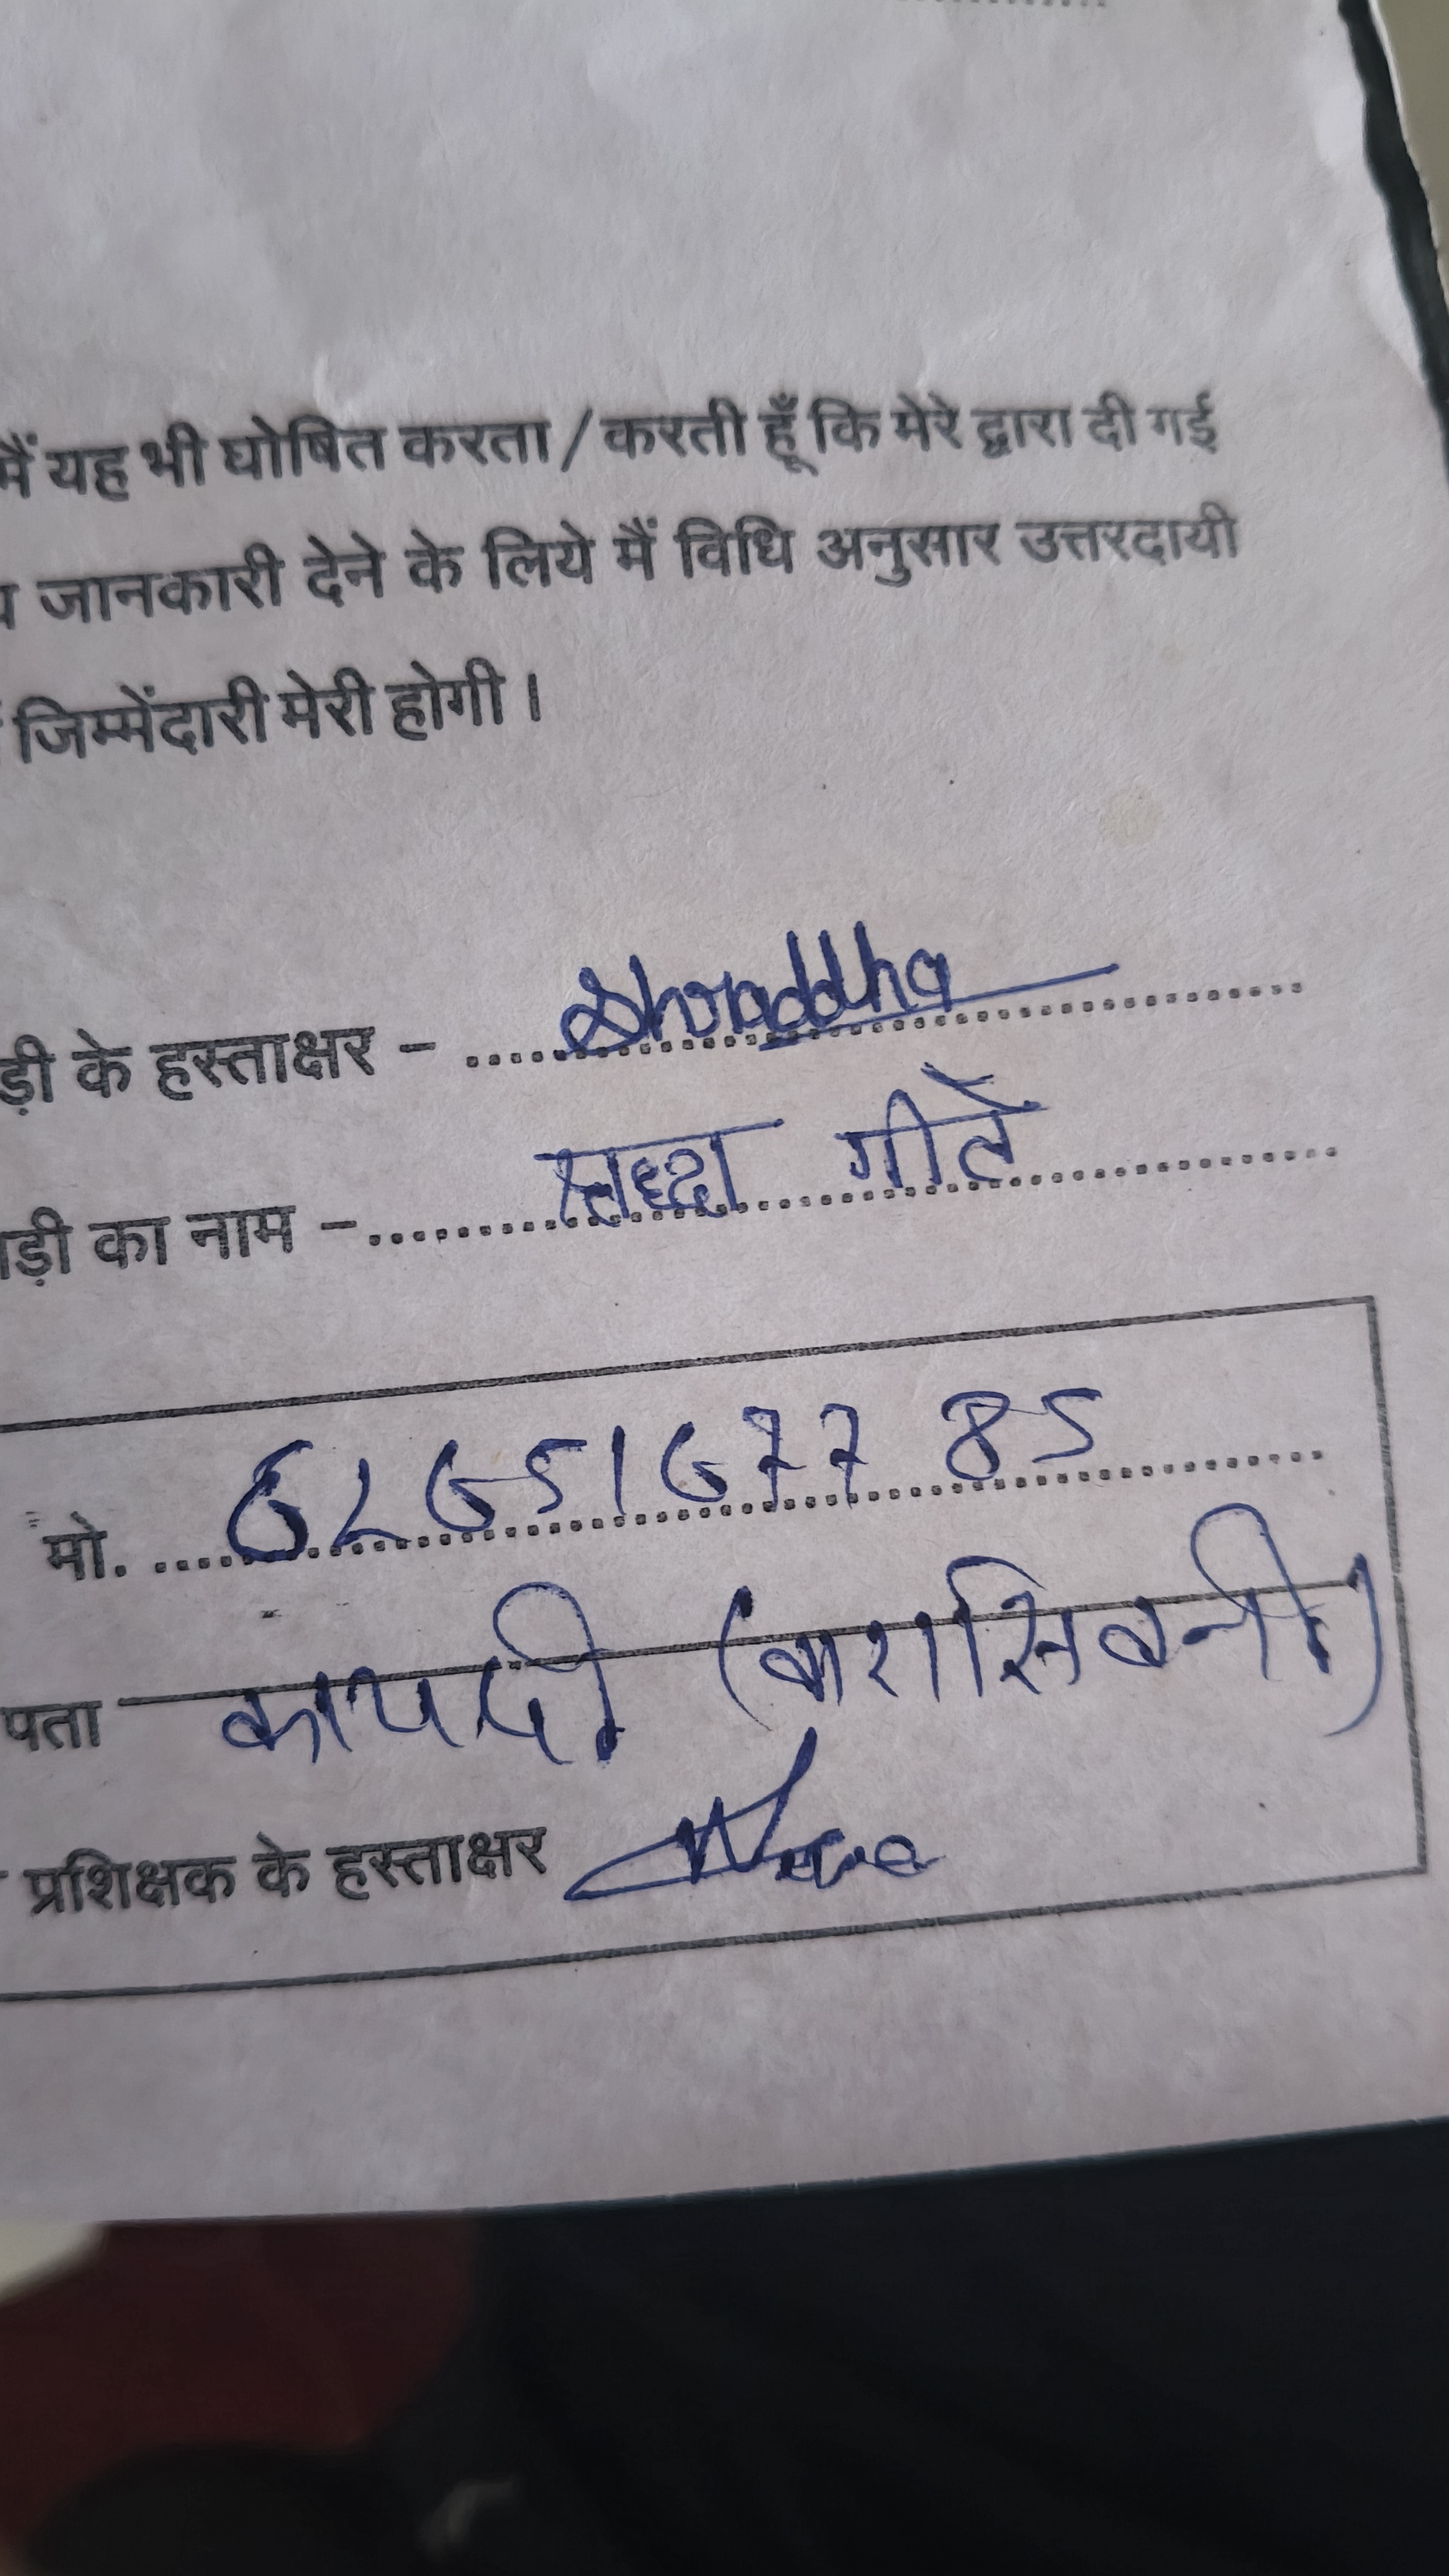 मैं यह भी घोषित करता / करती हूँ कि मेरे द्वारा दी गई
जानकारी देने के लिये मैं विधि अनुसार उत्तरदायी
जिम्मेंदारी मेरी होगी ।
ड़ी के हस्ताक्षर – Shraddha
ाड़ी का नाम – गीते
मो. 6265167785
पता (वारासिवनी)
प्रशिक्षक के हस्ताक्षर